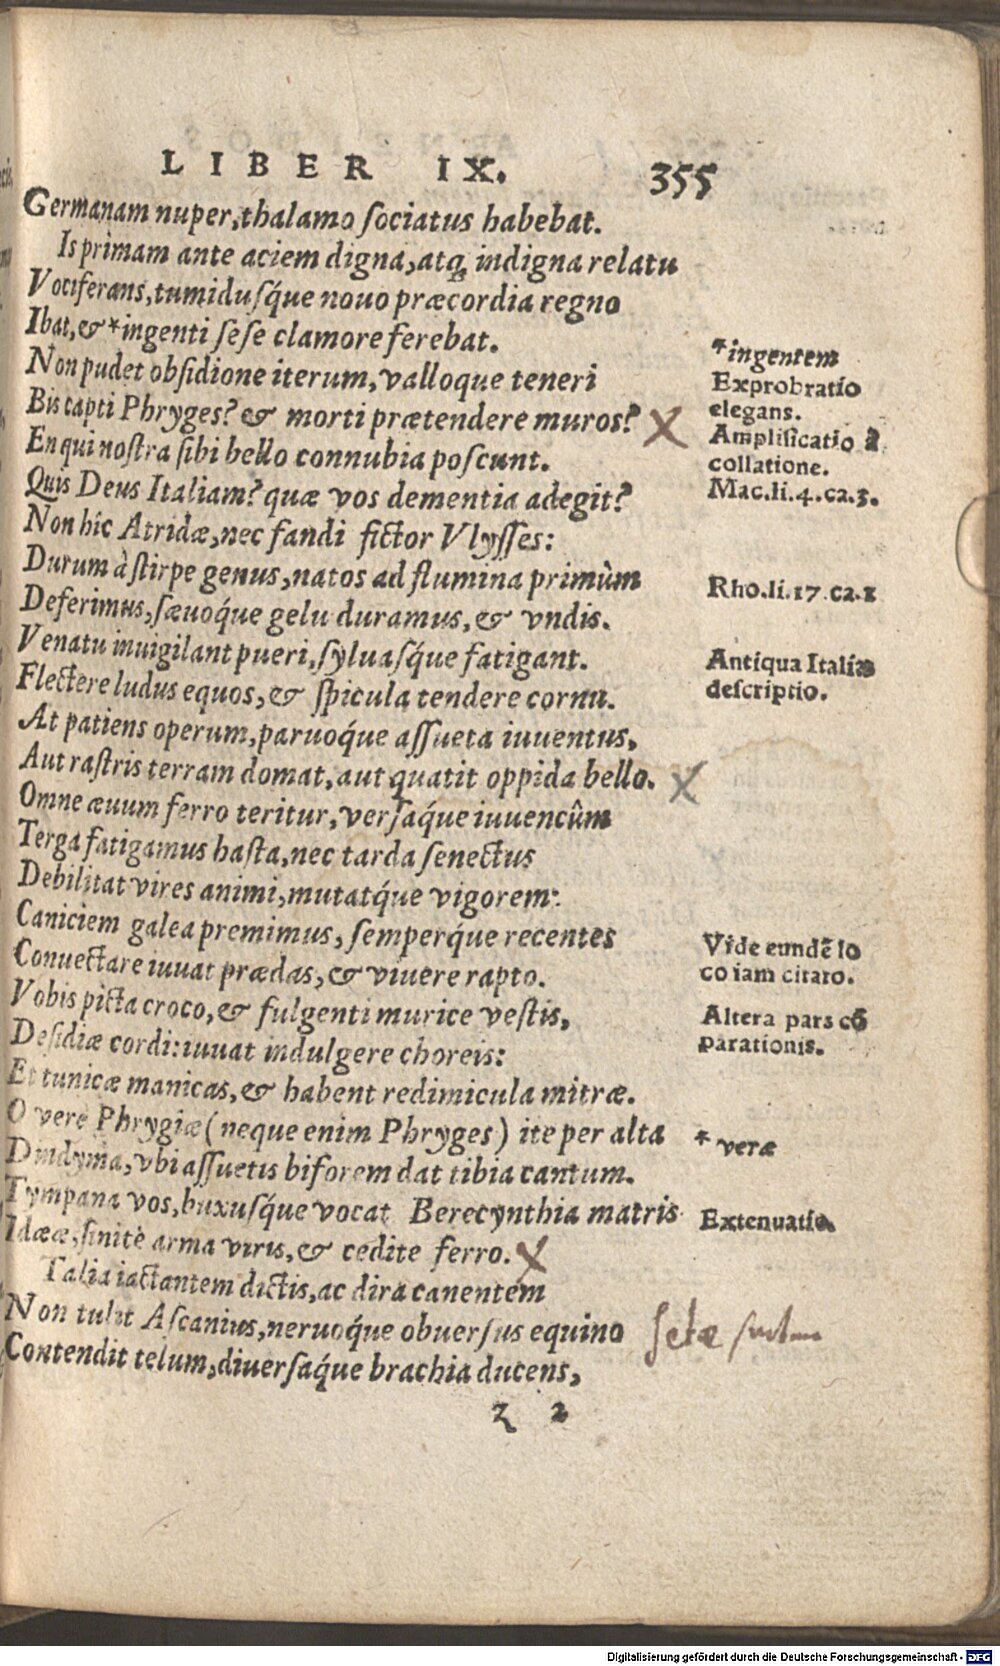 LIBER IX. 355
Germanam nuper, thalamo ſociatus habebat.
Is primam ante aciem digna, atq; indigna relatu
Vociferans, tumiduſq́ue nouo præcordia regno
Ibat, & *ingenti ſeſe clamore ferebat.
*ingentem
Non pudet obſidione iterum, valloque teneri
Exprobratio
Bis capti Phryges? & morti prætendere muros?
elegans.
Amplificatio à
En qui noſtra ſibi bello connubia poſcunt.
collatione.
Quis Deus Italiam? quæ vos dementia adegit?
Mac.li.4.ca.3.
Non hîc Atridæ, nec fandi fictor Vlyſſes:
Durum à ſtirpe genus, natos ad flumina primùm
Rho.li.17.ca.2
Deferimus, ſæuoq́ue gelu duramus, & vndis.
Venatu inuigilant pueri, ſyluaſq́ue fatigant.
Antiqua Italiæ
Flectere ludus equos, & ſpicula tendere cornu.
deſcriptio.
At patiens operum, paruoq́ue aſſueta iuuentus,
Aut raſtris terram domat, aut quatit oppida bello.
Omne æuum ferro teritur, verſaq́ue iuuencûm
Terga fatigamus haſta, nec tarda ſenectus
Debilitat vires animi, mutatq́ue vigorem:
Caniciem galea premimus, ſemperq́ue recentes
Vide eundē lo
Conuectare iuuat prædas, & viuere rapto.
co iam citato.
Vobis picta croco, & fulgenti murice veſtis,
Altera pars cō
Deſidiæ cordi: iuuat indulgere choreis:
parationis.
Et tunicæ manicas, & habent redimicula mitræ.
O verè Phrygiæ (neque enim Phryges) ite per alta
* veræ
Dindyma, vbi aſſuetis biforem dat tibia cantum.
Tympana vos, buxuſq́ue vocat Berecynthia matris
Extenuatio.
Idææ, ſinite arma viris, & cedite ferro.
Talia iactantem dictis, ac dira canentem
Non tulit Aſcanius, neruoq́ue obuerſus equino
ſetæ
Contendit telum, diuerſaq́ue brachia ducens,
z 2
Digitalisierung gefördert durch die Deutsche Forschungsgemeinschaft - DFG